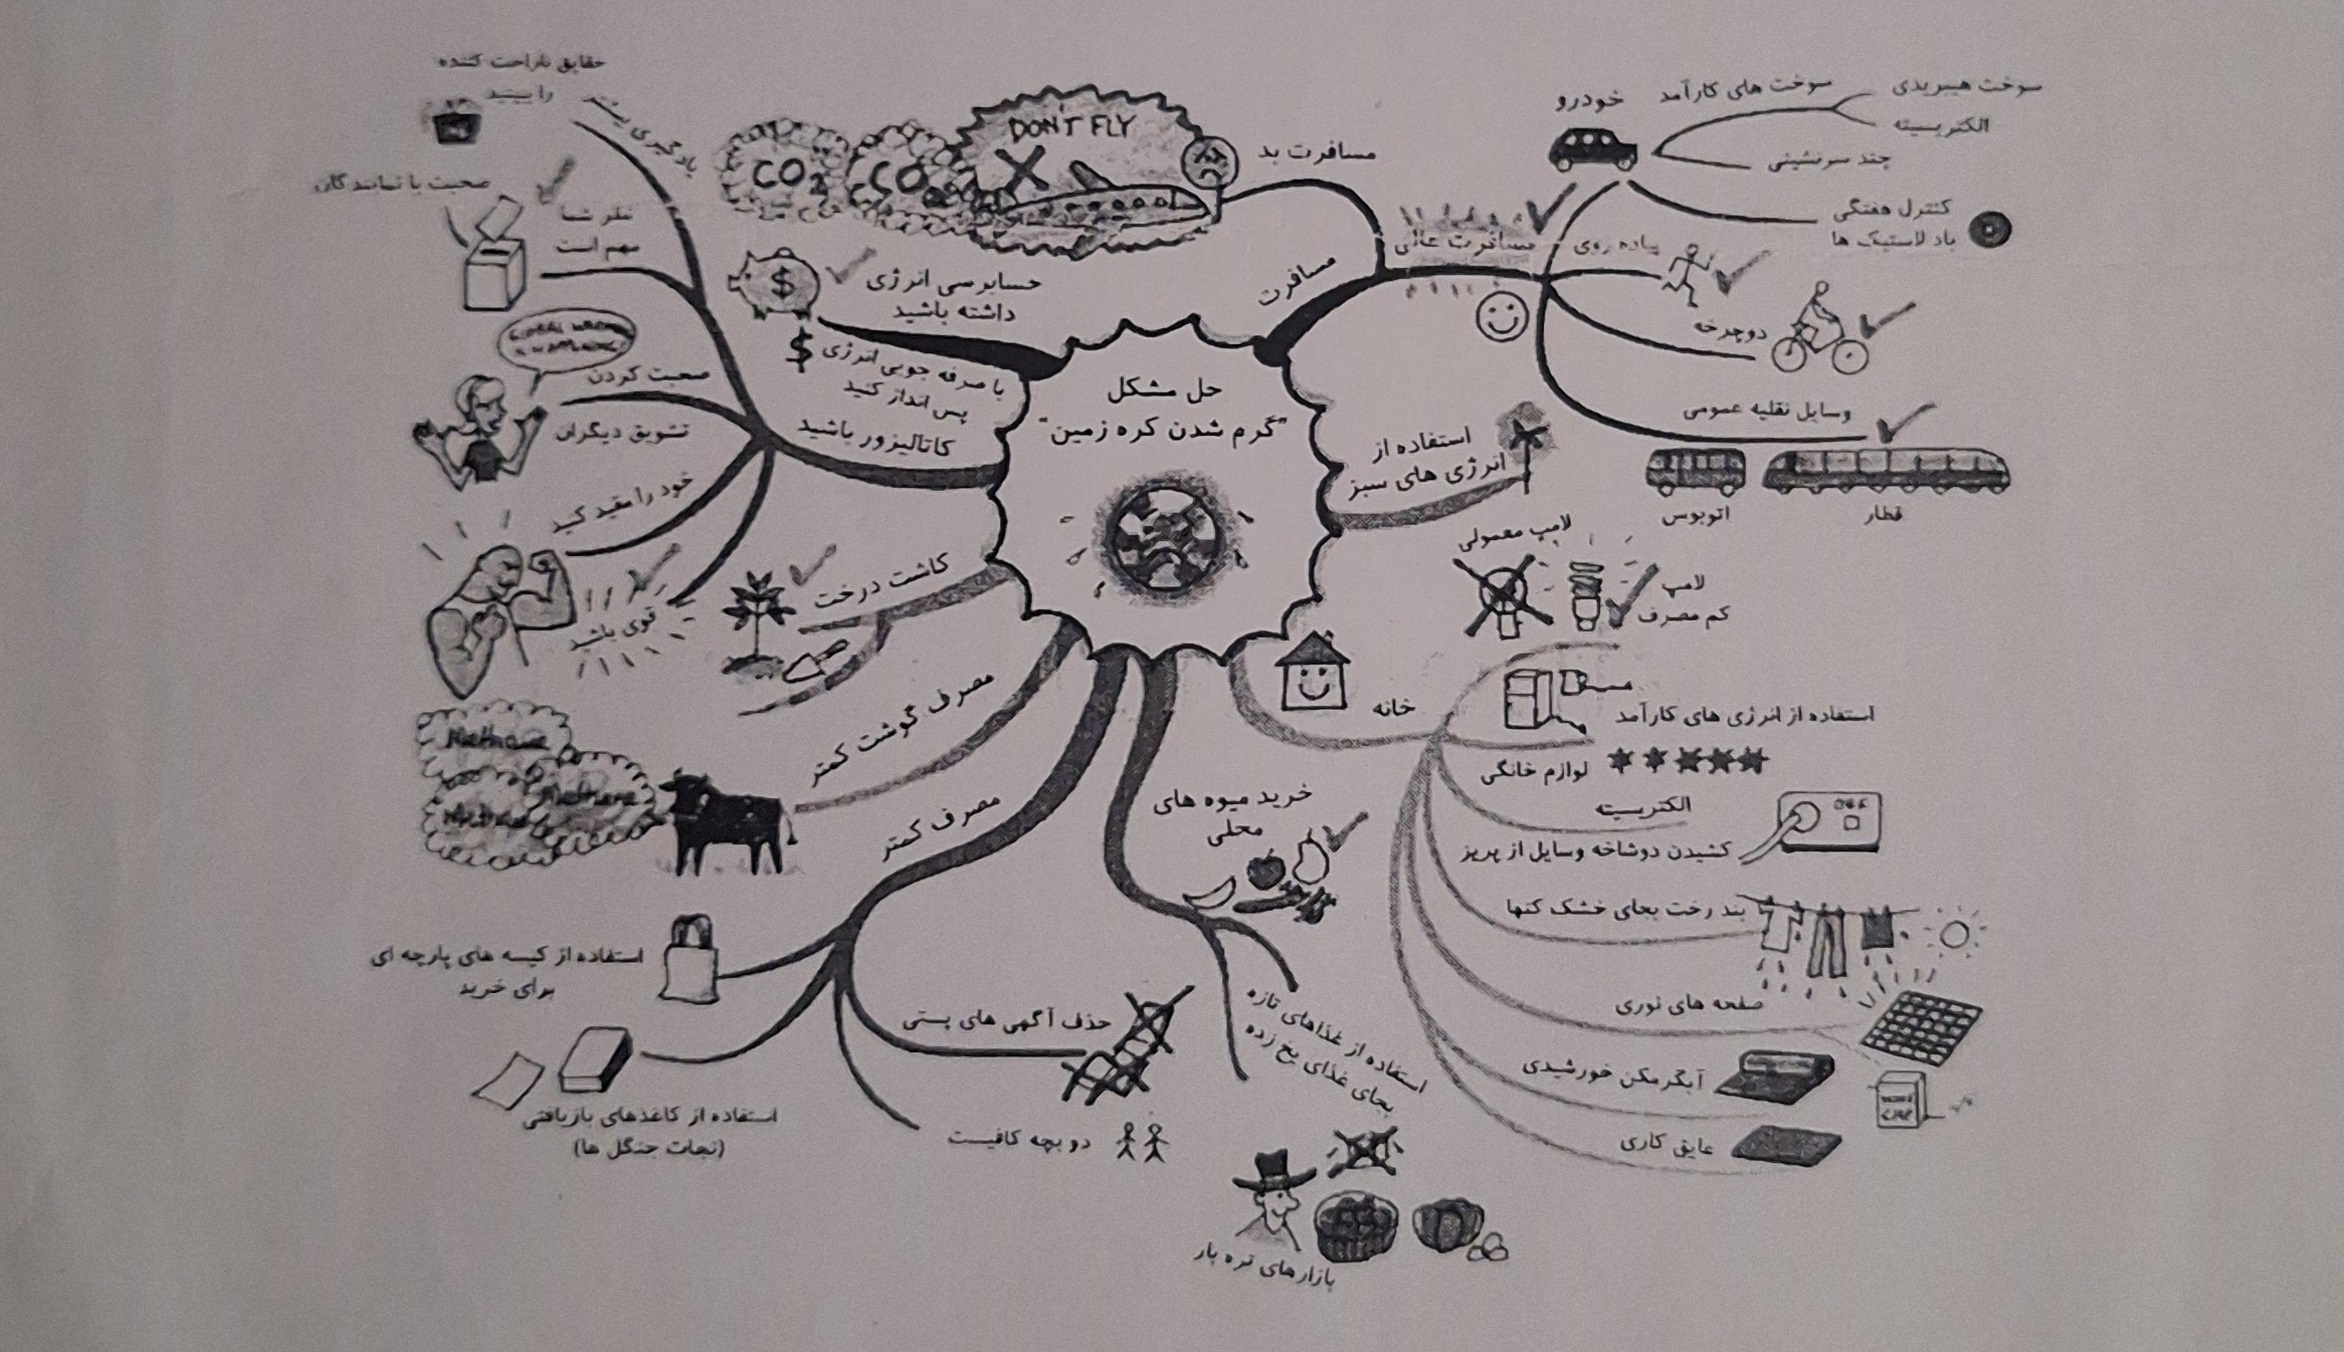 حل مشکل
"گرم شدن کره زمین"
مسافرت
مسافرت بد
DON'T FLY
CO₂
CO₂
مسافرت عالی
خودرو
سوخت های کارآمد
سوخت هیبریدی
الکتریسیته
چند سرنشینی
کنترل هفتگی
باد لاستیک ها
پیاده روی
دوچرخه
وسایل نقلیه عمومی
اتوبوس
قطار
استفاده از
انرژی های سبز
خانه
لامپ معمولی
لامپ
کم مصرف
استفاده از انرژی های کارآمد
لوازم خانگی
الکتریسیته
OFF
کشیدن دوشاخه وسایل از پریز
بند رخت بجای خشک کنها
صفحه های نوری
آبگرمکن خورشیدی
عایق کاری
خرید میوه های
محلی
استفاده از غذاهای تازه
بجای غذای یخ زده
بازارهای تره بار
مصرف کمتر
حذف آگهی های پستی
دو بچه کافیست
استفاده از کیسه های پارچه ای
برای خرید
استفاده از کاغذهای بازیافتی
(نجات جنگل ها)
مصرف گوشت کمتر
Methane
Methane
Methane
کاشت درخت
کاتالیزور باشید
یادگیری بیشتر
حقایق ناراحت کننده
را ببینید
نظر شما
مهم است
صحبت با نمایندگان
صحبت کردن
تشویق دیگران
خود را مقید کنید
قوی باشید
حسابرسی انرژی
داشته باشید
$
$ با صرفه جویی انرژی
پس انداز کنید